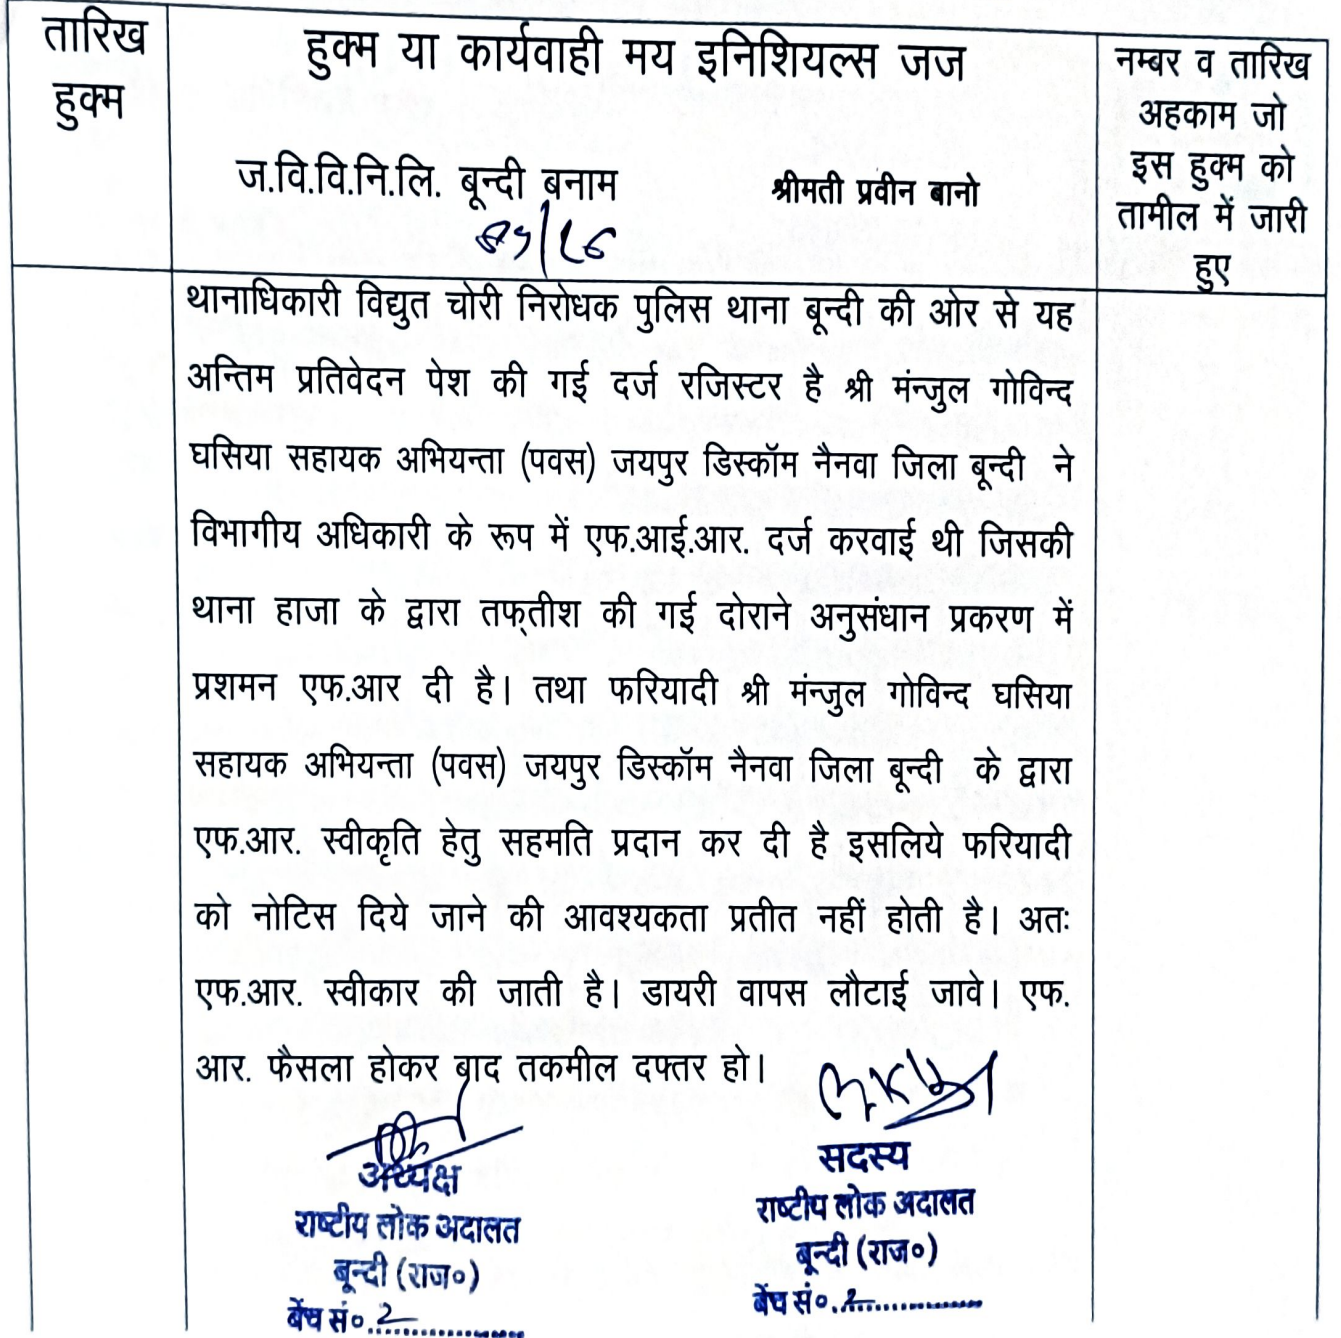 तारिख
हुक्म
हुक्म या कार्यवाही मय इनिशियल्स जज
ज.वि.वि.नि.लि. बून्दी बनाम श्रीमती प्रवीन बानो
नम्बर व तारिख
अहकाम जो
इस हुक्म को
तामील में जारी
हुए
थानाधिकारी विद्युत चोरी निरोधक पुलिस थाना बून्दी की ओर से यह
अन्तिम प्रतिवेदन पेश की गई दर्ज रजिस्टर है श्री मंन्जुल गोविन्द
घसिया सहायक अभियन्ता (पवस) जयपुर डिस्कॉम नैनवा जिला बून्दी ने
विभागीय अधिकारी के रूप में एफ.आई.आर. दर्ज करवाई थी जिसकी
थाना हाजा के द्वारा तफ्तीश की गई दोराने अनुसंधान प्रकरण में
प्रशमन एफ.आर दी है। तथा फरियादी श्री मंन्जुल गोविन्द घसिया
सहायक अभियन्ता (पवस) जयपुर डिस्कॉम नैनवा जिला बून्दी के द्वारा
एफ.आर. स्वीकृति हेतु सहमति प्रदान कर दी है इसलिये फरियादी
को नोटिस दिये जाने की आवश्यकता प्रतीत नहीं होती है। अतः
एफ.आर. स्वीकार की जाती है। डायरी वापस लौटाई जावे। एफ.
आर. फैसला होकर बाद तकमील दफ्तर हो।
अध्यक्ष
राष्टीय लोक अदालत
बून्दी (राज०)
बेंच सं०. 2
सदस्य
राष्टीय लोक अदालत
बून्दी (राज०)
बेंच सं०. 2